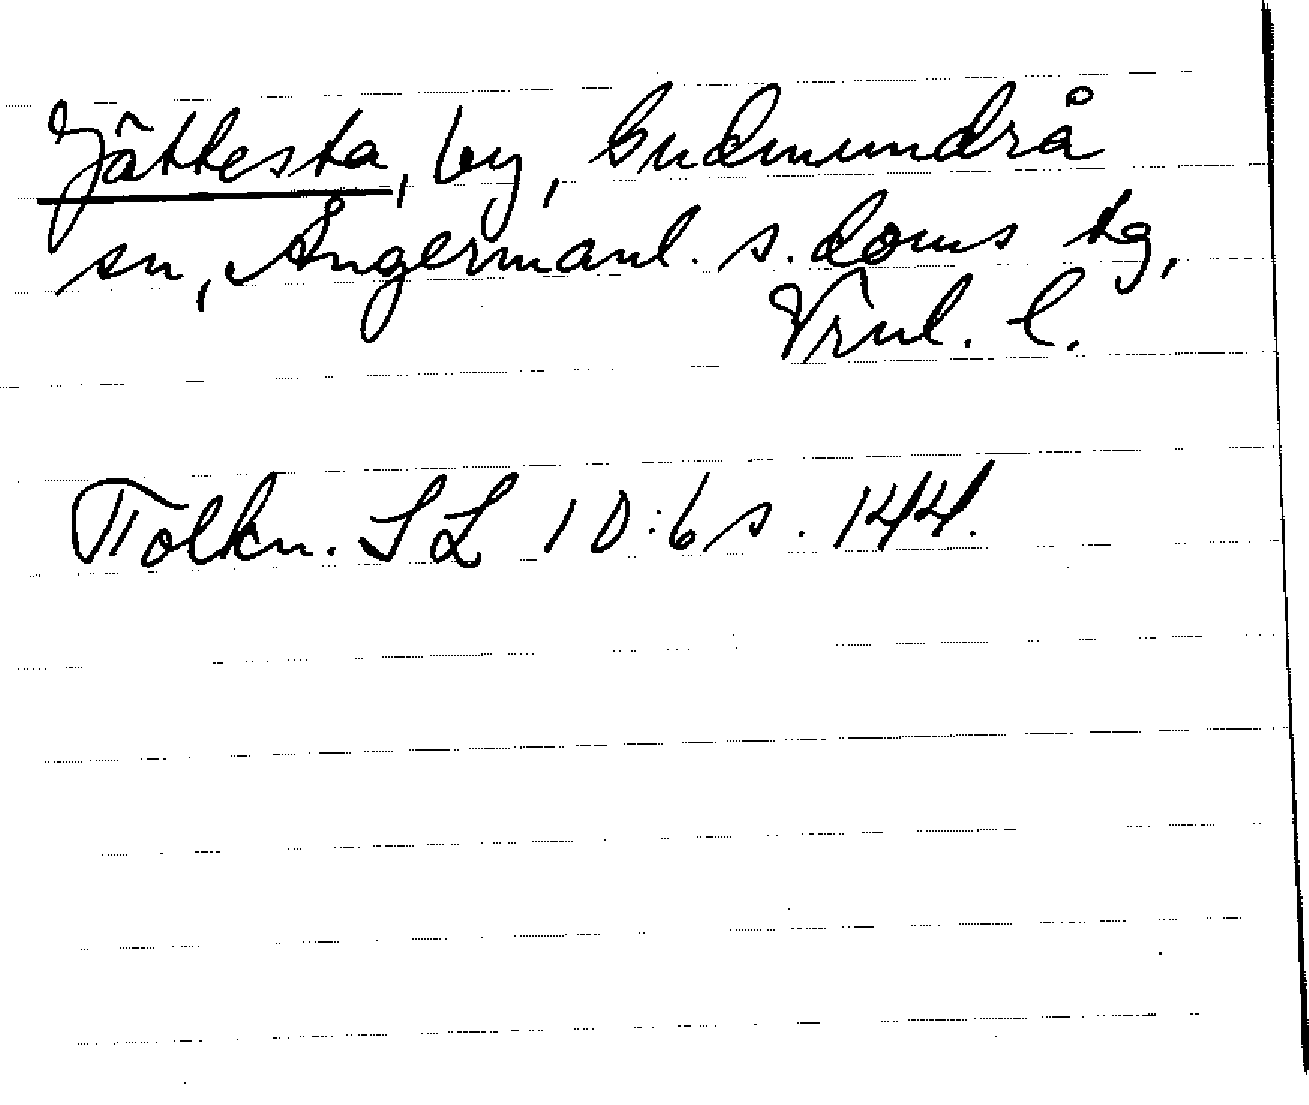 Jättesta, by, Gudmundrå
sn, Ångermanl. s. doms tg,
Vrnl. l.
Tolkn. SL 10:6 s. 144.